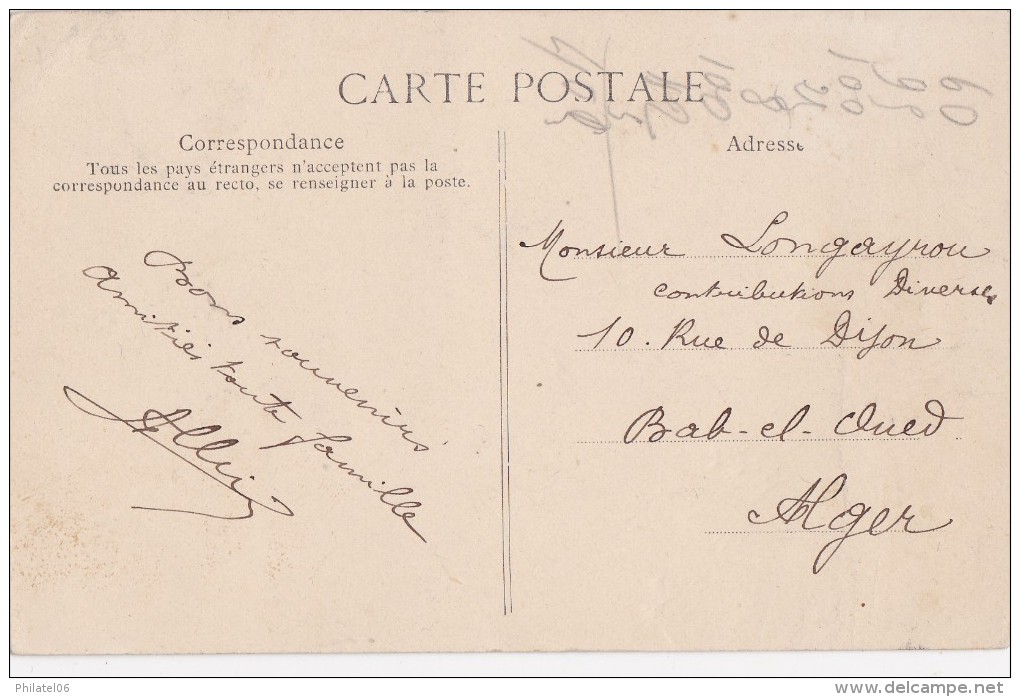 CARTE POSTALE
Correspondance
Tous les pays étrangers n'acceptent pas la
correspondance au recto, se renseigner à la poste.
Bons souvenirs
amitiés toute famille
Adresse
Monsieur Longayrou
contributions Diverses
10. Rue de Dijon
Bab-el-Oued
Alger
Philatel06
www.delcampe.net